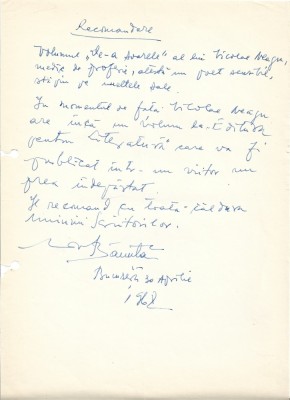 Recomandare
Volumul „De-a soarele" al lui Nicolae Neagu,
medic de profesie, atestă un poet sensibil,
stăpîn pe uneltele sale.
In momentul de față Nicolae Neagu
are încă un volum la Editura
pentru literatură care va fi
publicat într-un viitor nu
prea îndepărtat.
Il recomand cu toată căldura
Uniunii Scriitorilor.
Ion Bănuță
București 30 Aprilie
1968